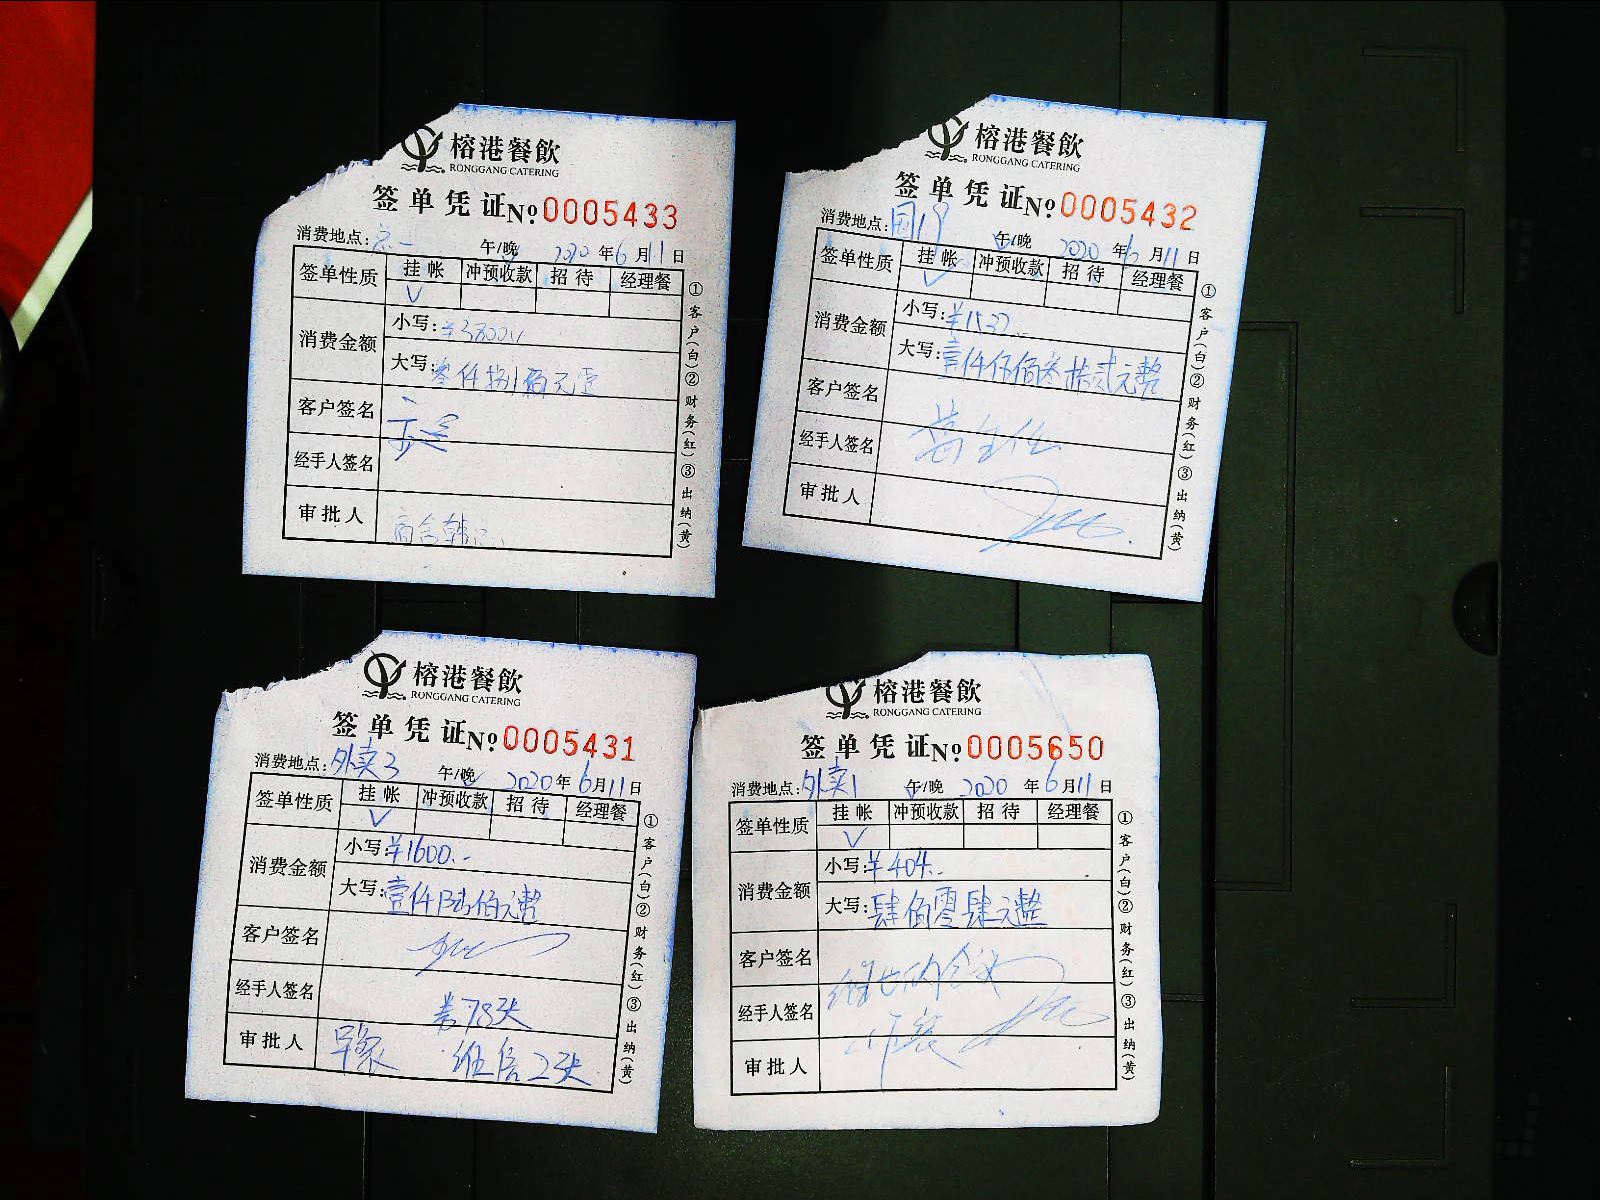 榕港餐飲
RONGGANG CATERING
签单凭证№0005433
消费地点: 午/晚 2020年6月11日
签单性质 挂帐 冲预收款 招待 经理餐
√
消费金额 小写:¥3800
大写:叁仟捌佰元正
客户签名
经手人签名
审批人
①客户(白)②财务(红)③出纳(黄)
榕港餐飲
RONGGANG CATERING
签单凭证№0005432
消费地点: 午/晚 2020年6月11日
签单性质 挂帐 冲预收款 招待 经理餐
√
消费金额 小写:
大写:壹仟伍佰叁拾贰元整
客户签名
经手人签名
审批人
①客户(白)②财务(红)③出纳(黄)
榕港餐飲
RONGGANG CATERING
签单凭证№0005431
消费地点:外卖3 午/晚 2020年6月11日
签单性质 挂帐 冲预收款 招待 经理餐
√
消费金额 小写:¥1600.-
大写:壹仟陆佰元整
客户签名
经手人签名 78张
审批人 2张
①客户(白)②财务(红)③出纳(黄)
榕港餐飲
RONGGANG CATERING
签单凭证№0005650
消费地点:外卖1 午/晚 2020年6月11日
签单性质 挂帐 冲预收款 招待 经理餐
√
消费金额 小写:¥404.-
大写:肆佰零肆元整
客户签名
经手人签名
审批人
①客户(白)②财务(红)③出纳(黄)